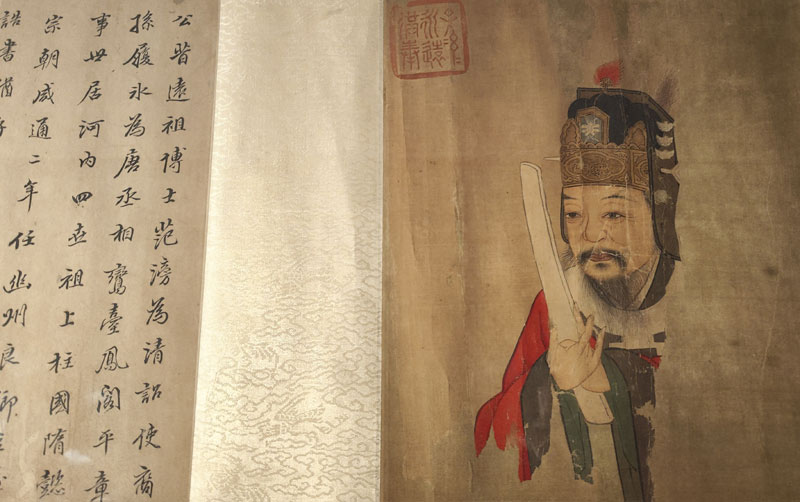 公昔遠祖博士范滂為清詔使裔
孫履冰為唐丞相鸞臺鳳閣平章
事世居河內四世祖上柱國隋懿
宗朝咸通二年任幽州良鄉主
誥書猶存
永遠